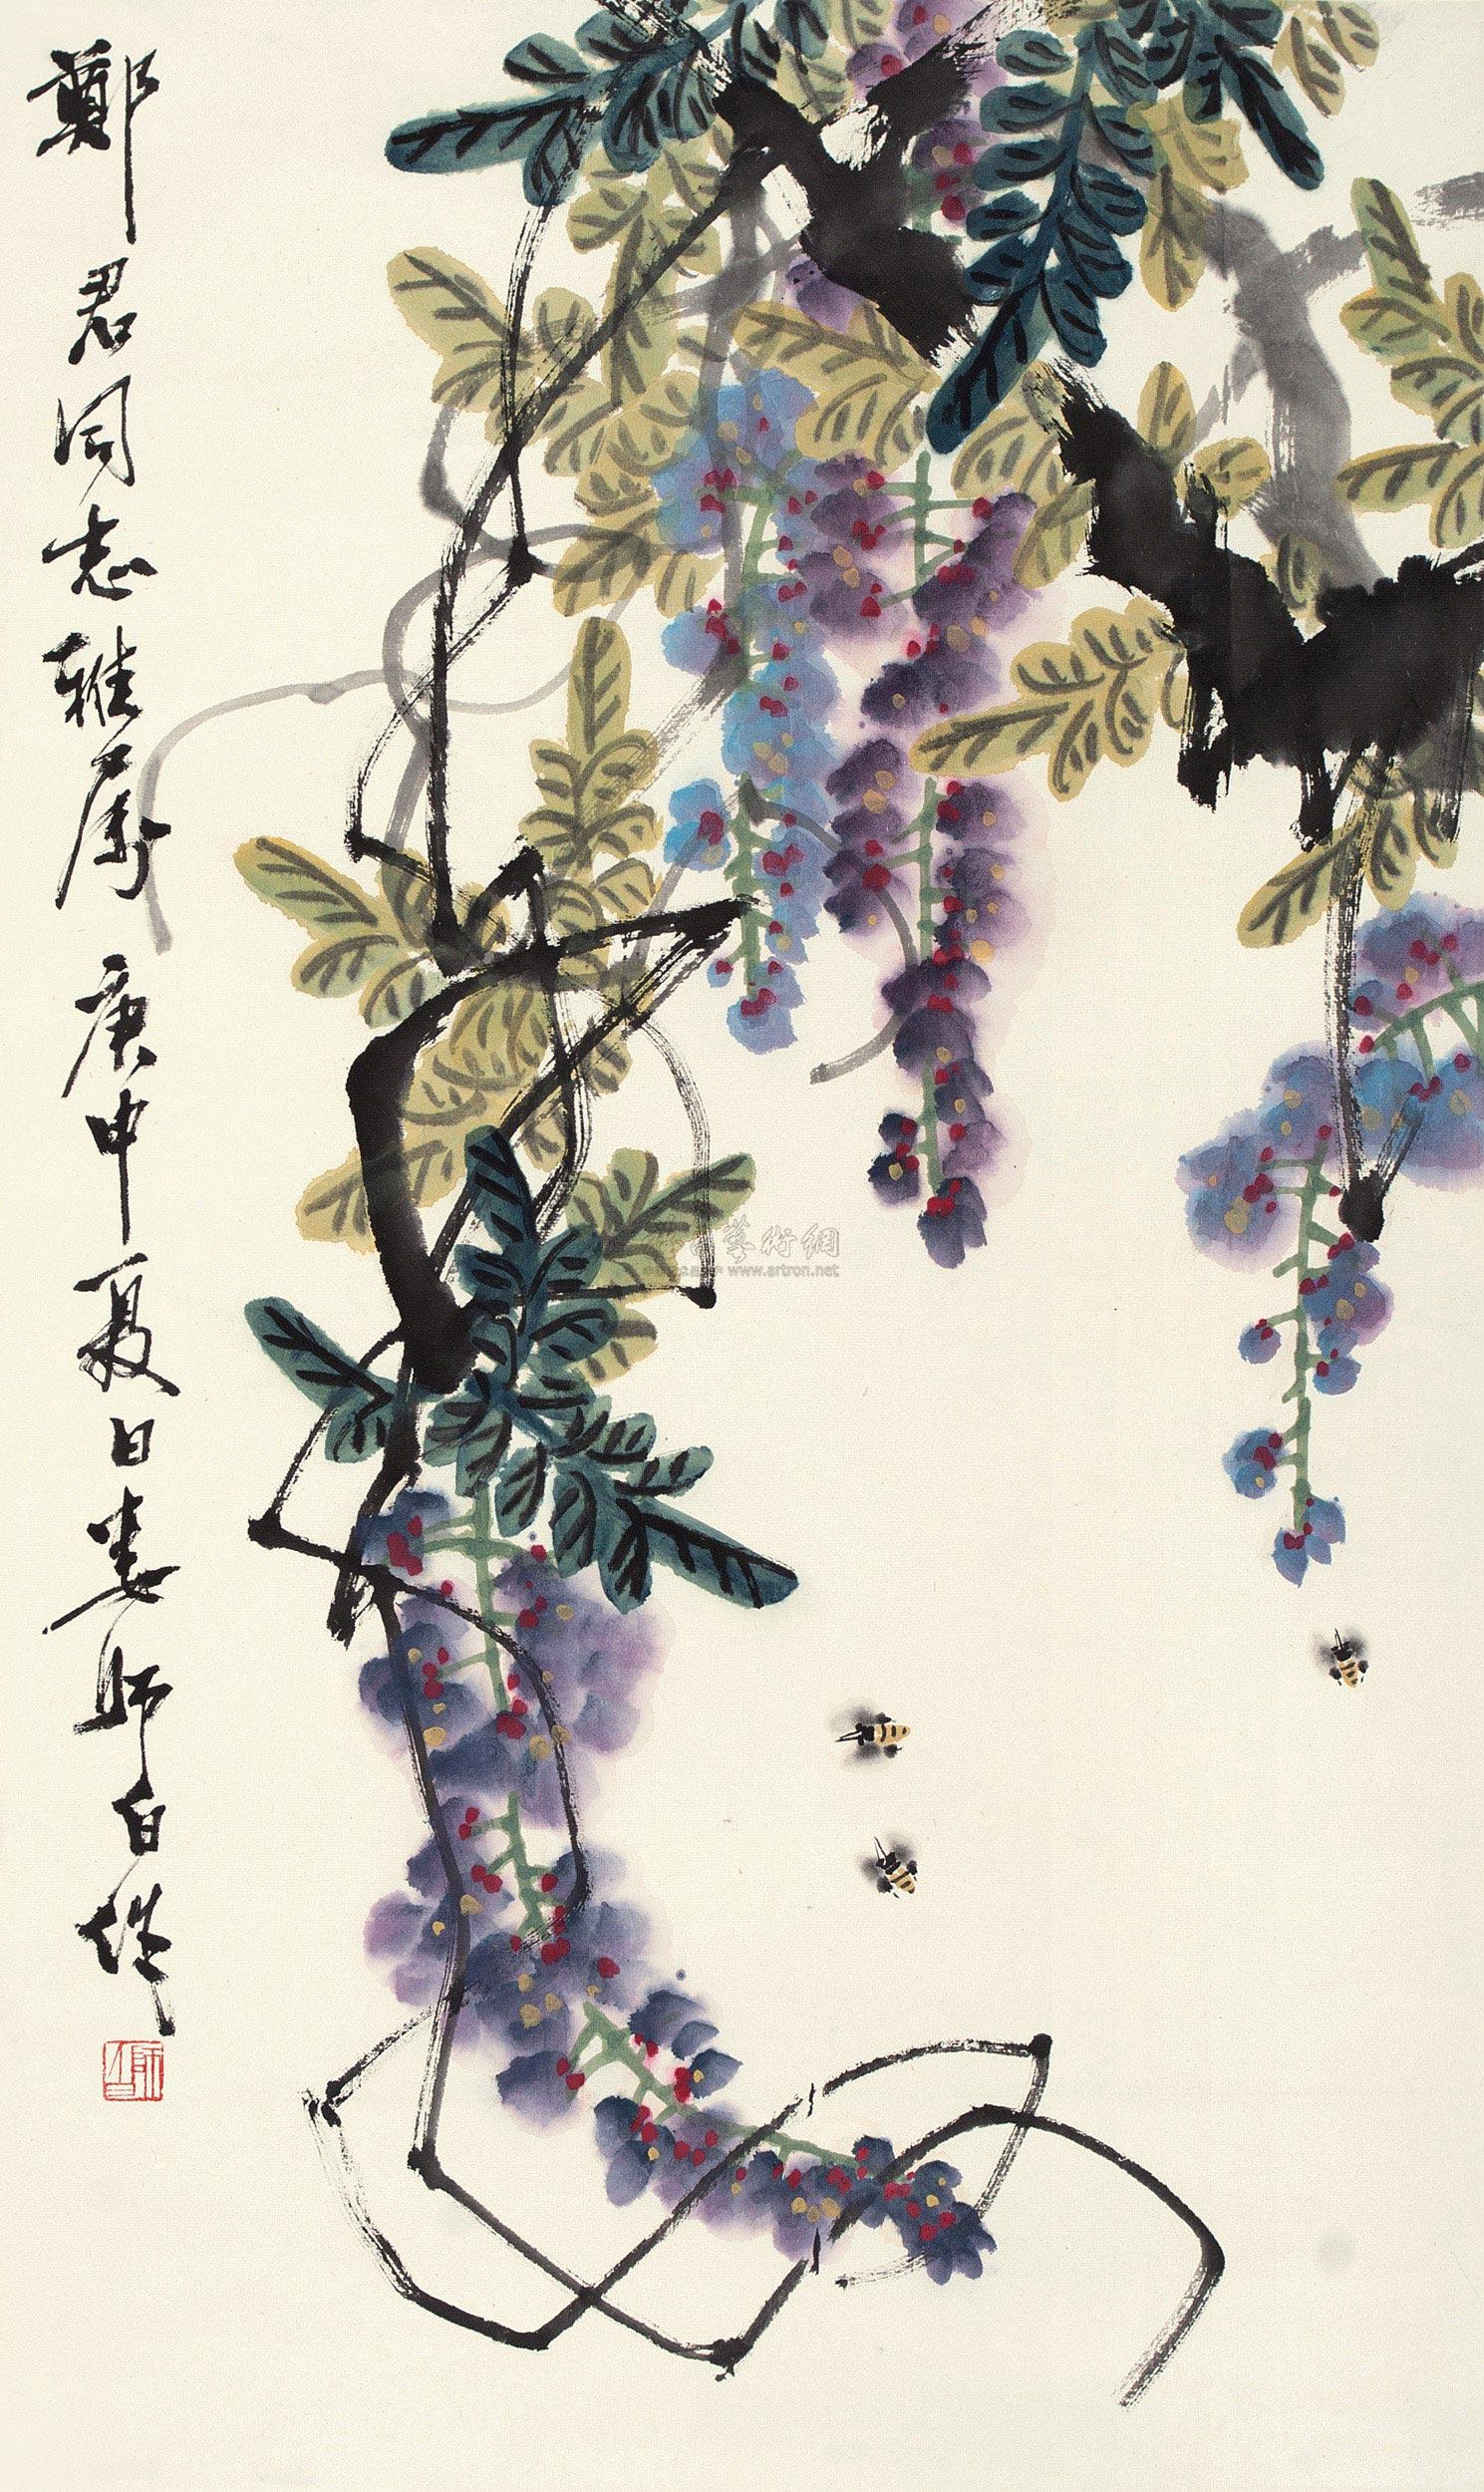 鄭君同志雅属庚申夏日娄師白作
藝術網
www.artron.net